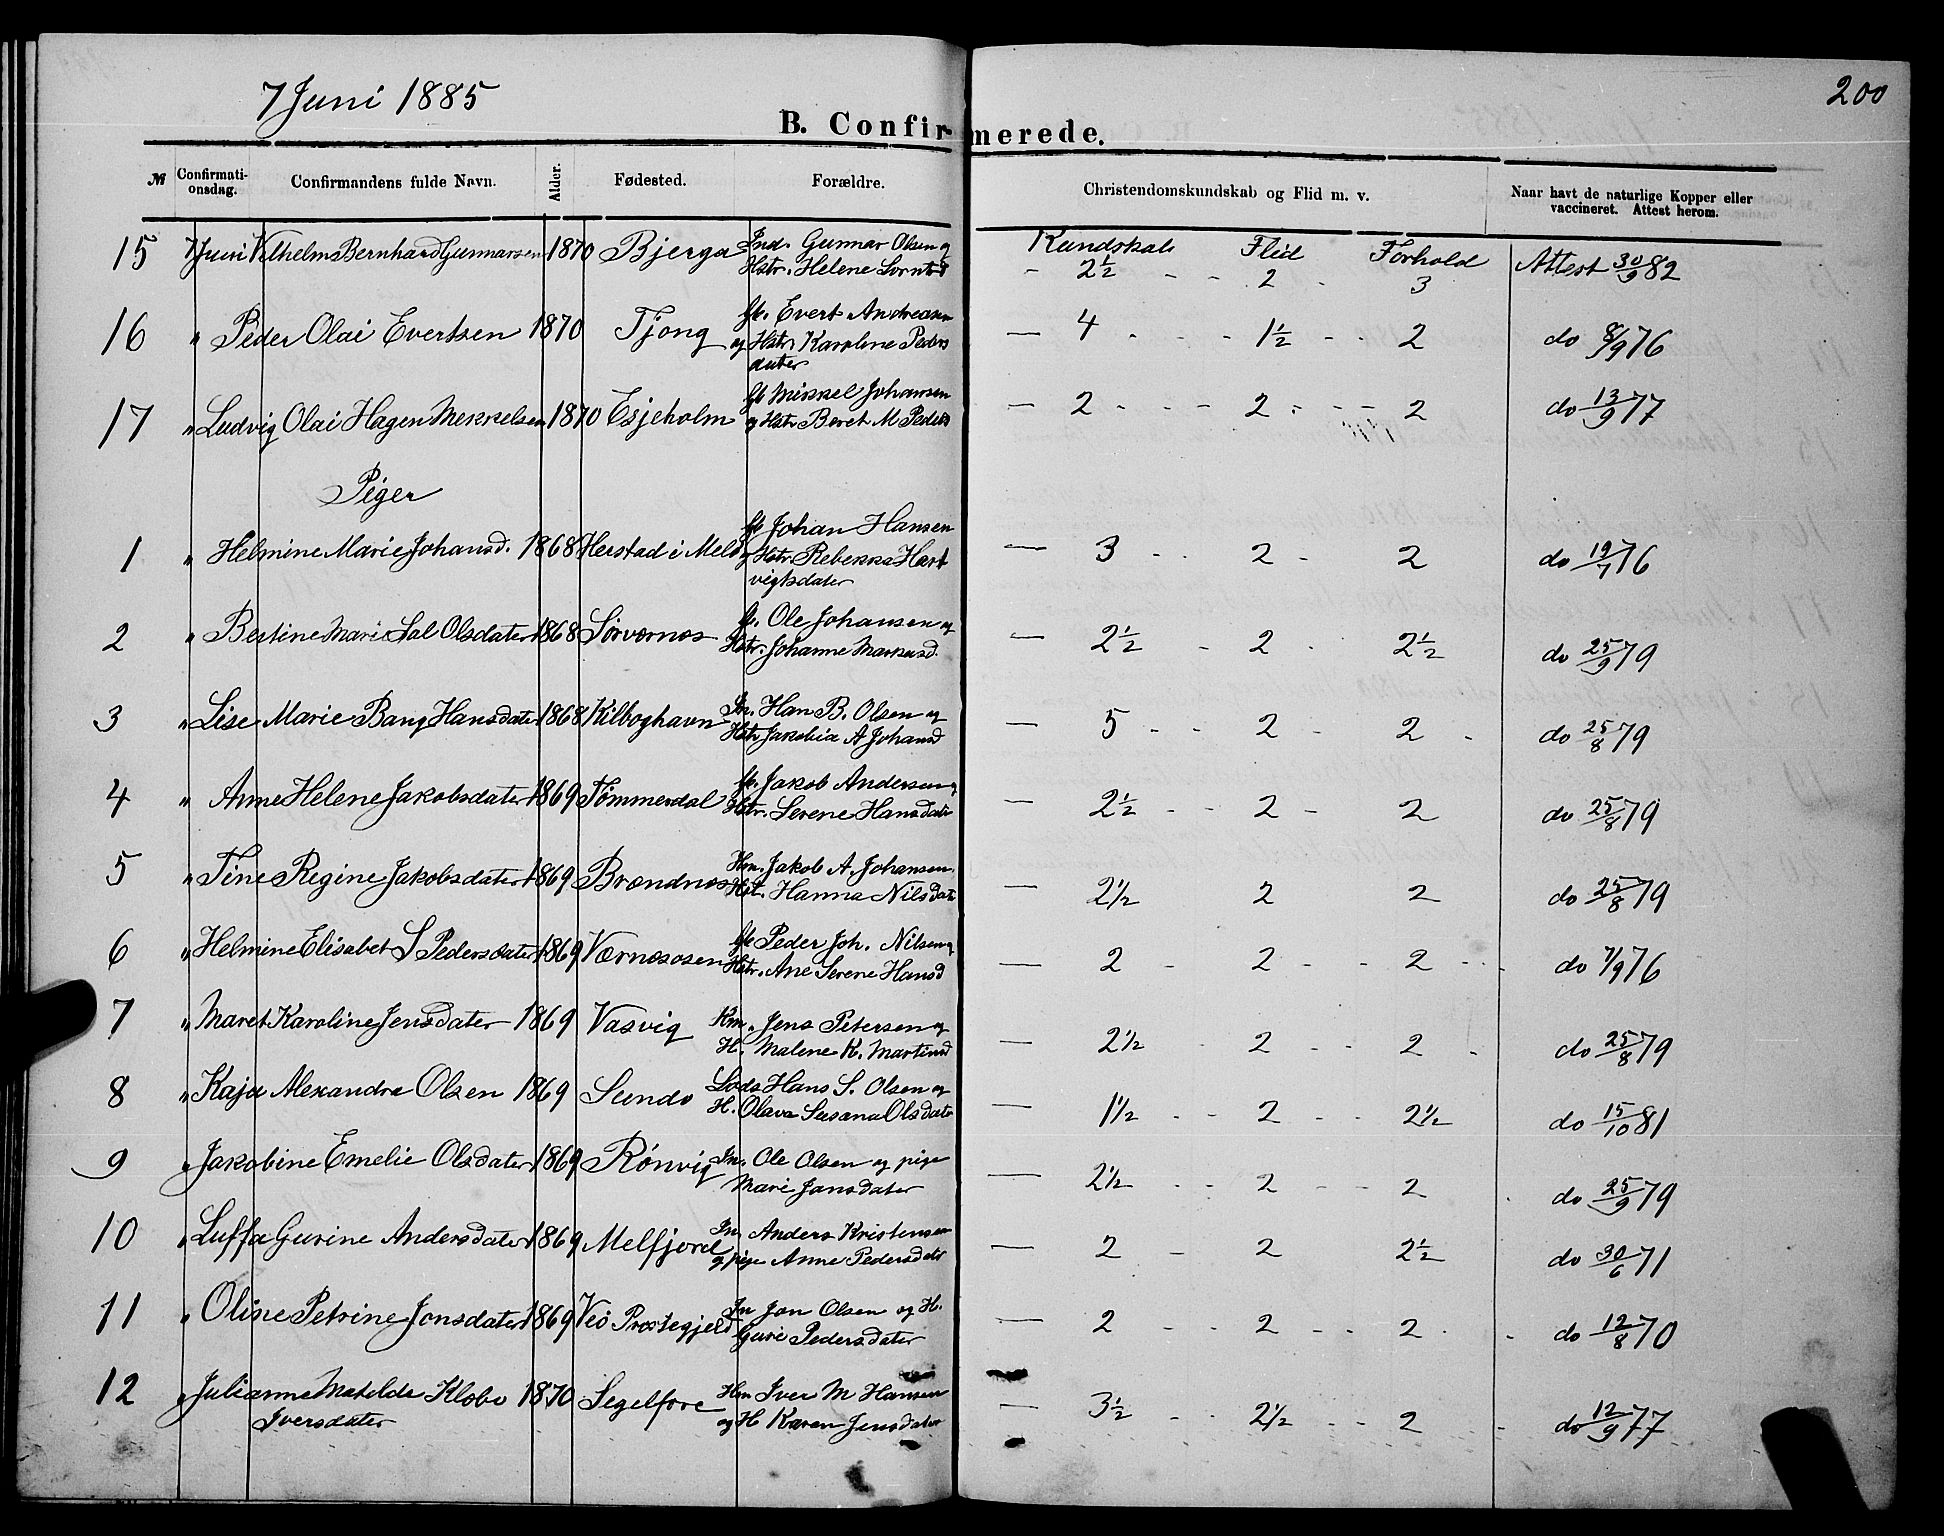 7 Juni 1885
200
B. Confirmerede.
№ Confirmati-onsdag. Confirmandens fulde Navn. Alder. Fødested. Forældre. Christendomskundskab og Flid m. v. Naar havt de naturlige Kopper eller vaccineret. Attest herom.
Kundskab Flid Forhold
15 7 Juni Vilhelm Bernhard Gunnarsen 1870 Bjerga Ind. Gunnar Olsen og Hstr. Helene - 2½ - - 2 - 3 Attest 30/9 82
16 " Peder Olai Evertsen 1870 Tjong Evert Andreasen og Hstr. Karoline Peders dater — 4 - - - 1½ - - 2 do 8/9 76
17 " Ludvig Olai Hagen Mekkelsen 1870 Esjeholm Mikkel Johansen og Hstr Beret M Peders — 2 - - - 2 - - - 2 do 13/9 77
Piger
1 " Helmine Marie Johansd. 1868 Herstad i Johan Hansen og Hstr. Rebekka Hart vigsdater — 3 - - 2 - 2 do 19/7 76
2 " Bertine Marie Sal Olsdater 1868 Sörvernes Ole Johansen og Hstr. Johanne Markusd. — 2½ - 2 - 2½ do 25/9 79
3 " Lise Marie Bang Hansdater 1868 Kilboghavn In. Han B. Olsen og Hstr Jakobia A Johansd — 5 - - 2 - 2 - do 25/8 79
4 " Anne Helene Jakobsdater 1869 Tömmerdal Jakob Andersen og Hstr. Serene Hansdater — 2½ - - 2 - 2 do 25/8 79
5 " Tine Regine Jakobsdater 1869 Brændnes Hm. Jakob A. Johansen Hst. Hanna Nilsdate — 2½ 2 2 do 25/8 79
6 " Helmine Elisabet S Pedersdater 1869 Værnesosen Peder Joh. Nilsen og Hstr. Ane Serene Hansd — 2 - 2 - - 2 - - do 7/9 76
7 " Maret Karoline Jensdater 1869 Vasvig Hm. Jens Petersen og H. Malene K. Martinsd — 2½ - 2 - - 2 - do 25/8 79
8 " Kaja Alexandra Olsen 1869 Sundö Lods Hans S. Olsen og H. Olava Susana Olsdate — 1½ - - 2 - - 2½ do 15/10 81
9 " Jakobine Emelie Olsdater 1869 Rönvig In. Ole Olsen og pige Marie Jansdater — 2½ - - 2 - - 2 - do 25/9 79
10 " Luffa Gurine Andersdater 1869 Melfjord In. Anders Kristensen og pige Anne Pedersdatr — 2 - 2 2½ do 30/6 71
11 " Oline Petrine Jonsdater 1869 Veö Præstegjeld In Jon Olsen og H. Guri Pedersdater — 2 - - 2 - - 2 - - do 12/8 70
12 " Julianne Matilde Klobo Iversdater 1870 Segelfore Hm Iver M Hansen og H Karen Jensdater — 3½ - - 2½ - - 2 - do 12/9 77